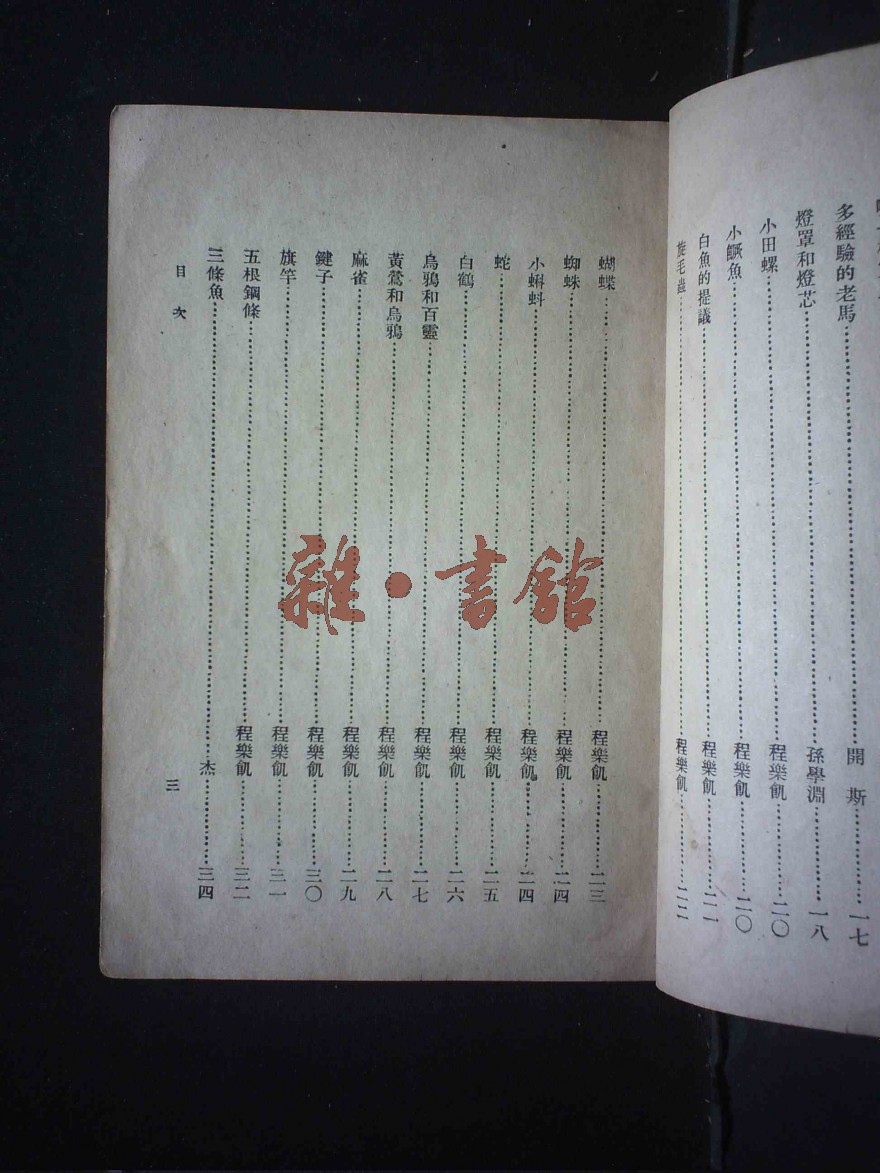 多經驗的老馬……開斯……一七
燈罩和燈芯……孫學淵……一八
小田螺……程樂飢……二〇
小鱖魚……程樂飢……二〇
白魚的提議……程樂飢……二一
旋毛蟲……程樂飢……二二
蝴蝶……程樂飢……二三
蜘蛛……程樂飢……二四
小蝌蚪……程樂飢……二四
蛇……程樂飢……二五
白鶴……程樂飢……二六
烏鴉和百靈……程樂飢……二七
黃鶯和烏鴉……程樂飢……二八
麻雀……程樂飢……二九
鍵子……程樂飢……三〇
旗竿……程樂飢……三一
五根鋼條……程樂飢……三二
三條魚……杰……三四
目次
三
雜·書館